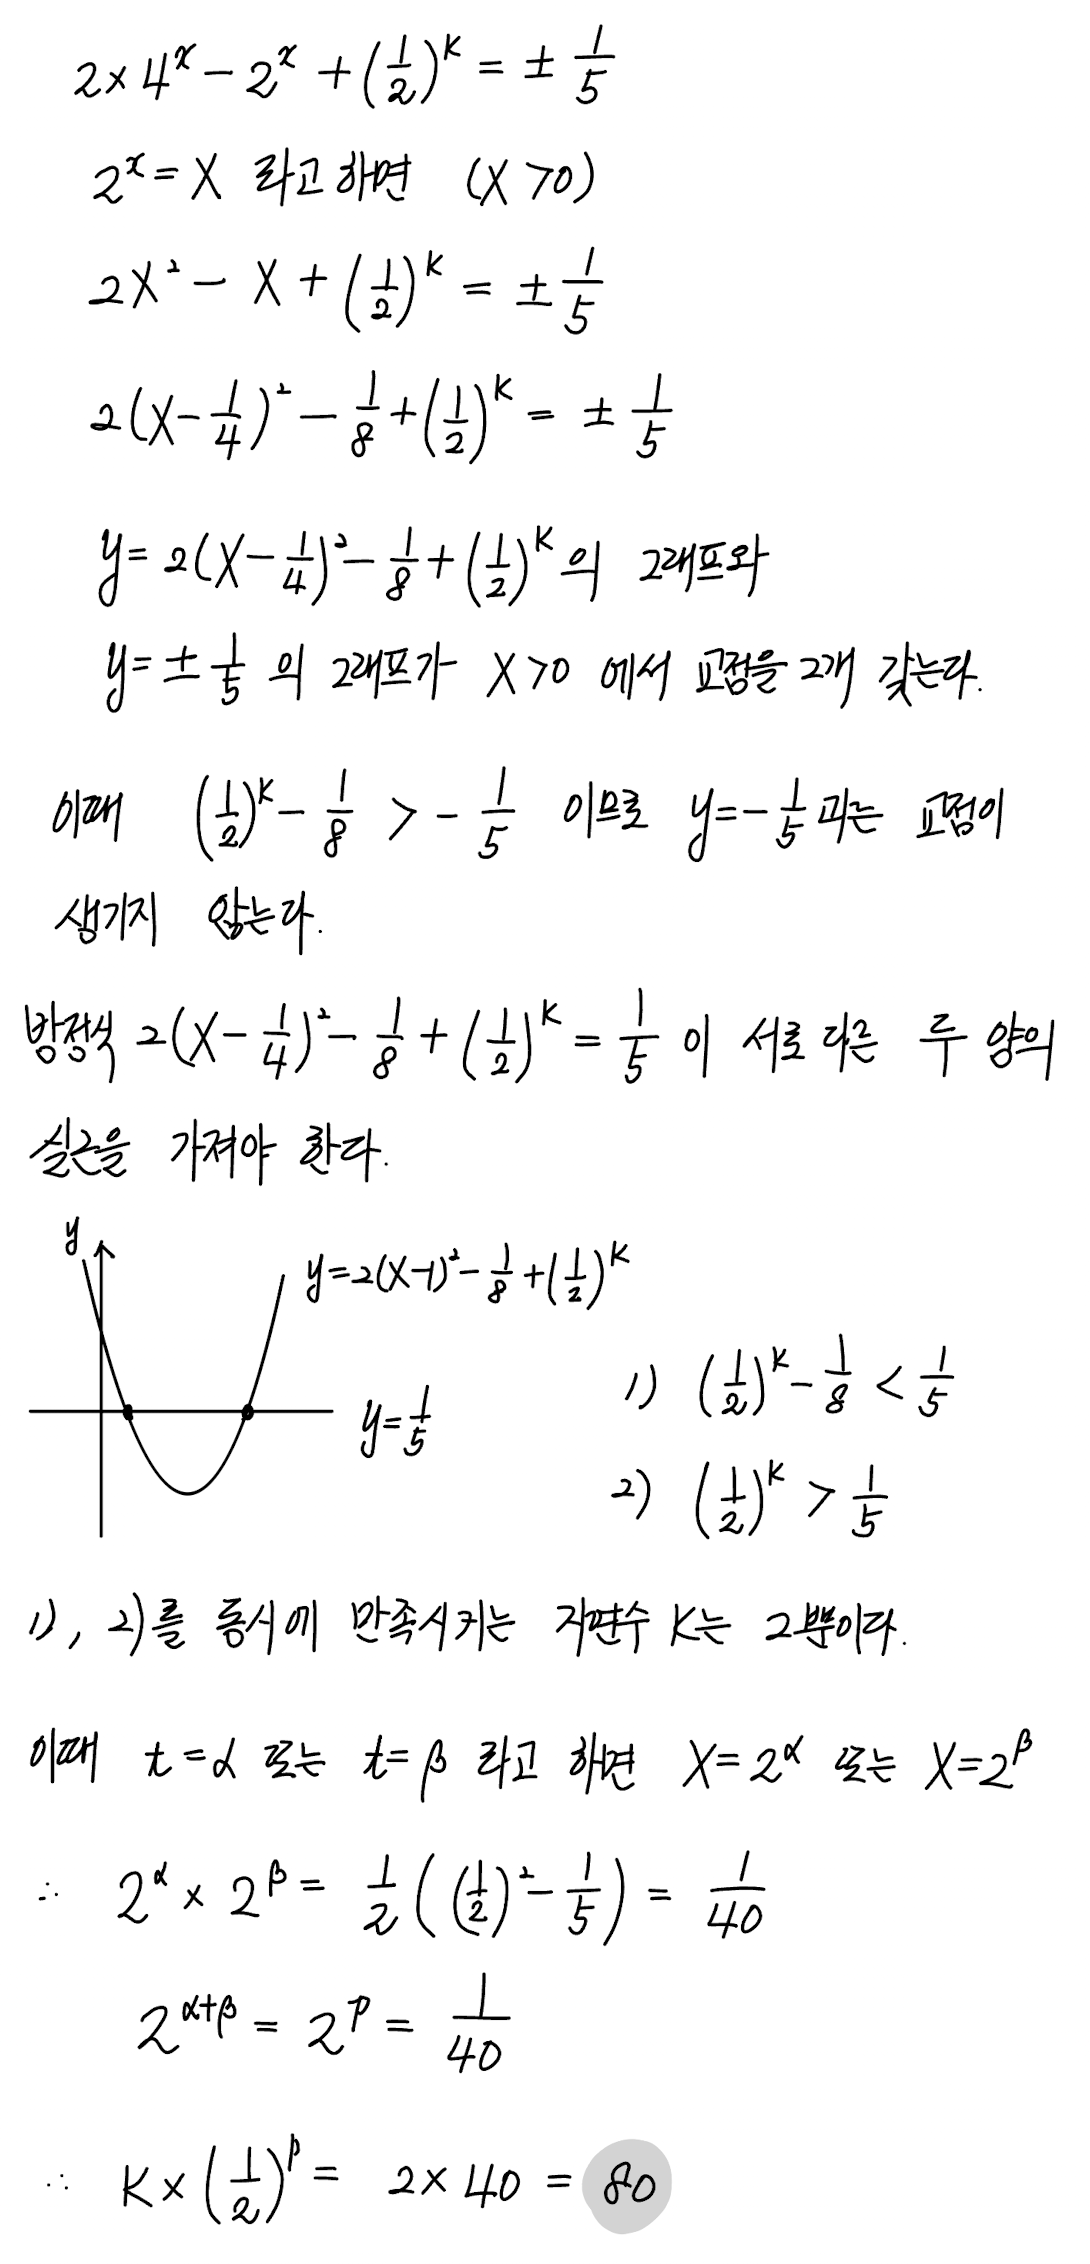 2×4^x − 2^x + (1/2)^k = ± 1/5
2^x = X 라고 하면 (X > 0)
2X² − X + (1/2)^k = ± 1/5
2(X − 1/4)² − 1/8 + (1/2)^k = ± 1/5
y = 2(X − 1/4)² − 1/8 + (1/2)^k 의 그래프와
y = ± 1/5 의 그래프가 X > 0 에서 교점을 2개 갖는다.
이때 (1/2)^k − 1/8 > − 1/5 이므로 y = − 1/5 과는 교점이
생기지 않는다.
방정식 2(X − 1/4)² − 1/8 + (1/2)^k = 1/5 이 서로 다른 두 양의
실근을 가져야 한다.
y
y = 2(X−1)² − 1/8 + (1/2)^k
1) (1/2)^k − 1/8 < 1/5
y = 1/5
2) (1/2)^k > 1/5
1), 2)를 동시에 만족시키는 자연수 k는 2뿐이다.
이때 t = α 또는 t = β 라고 하면 X = 2^α 또는 X = 2^β
∴ 2^α × 2^β = 1/2 ((1/2)² − 1/5) = 1/40
2^(α+β) = 2^p = 1/40
∴ k × (1/2)^p = 2 × 40 = 80